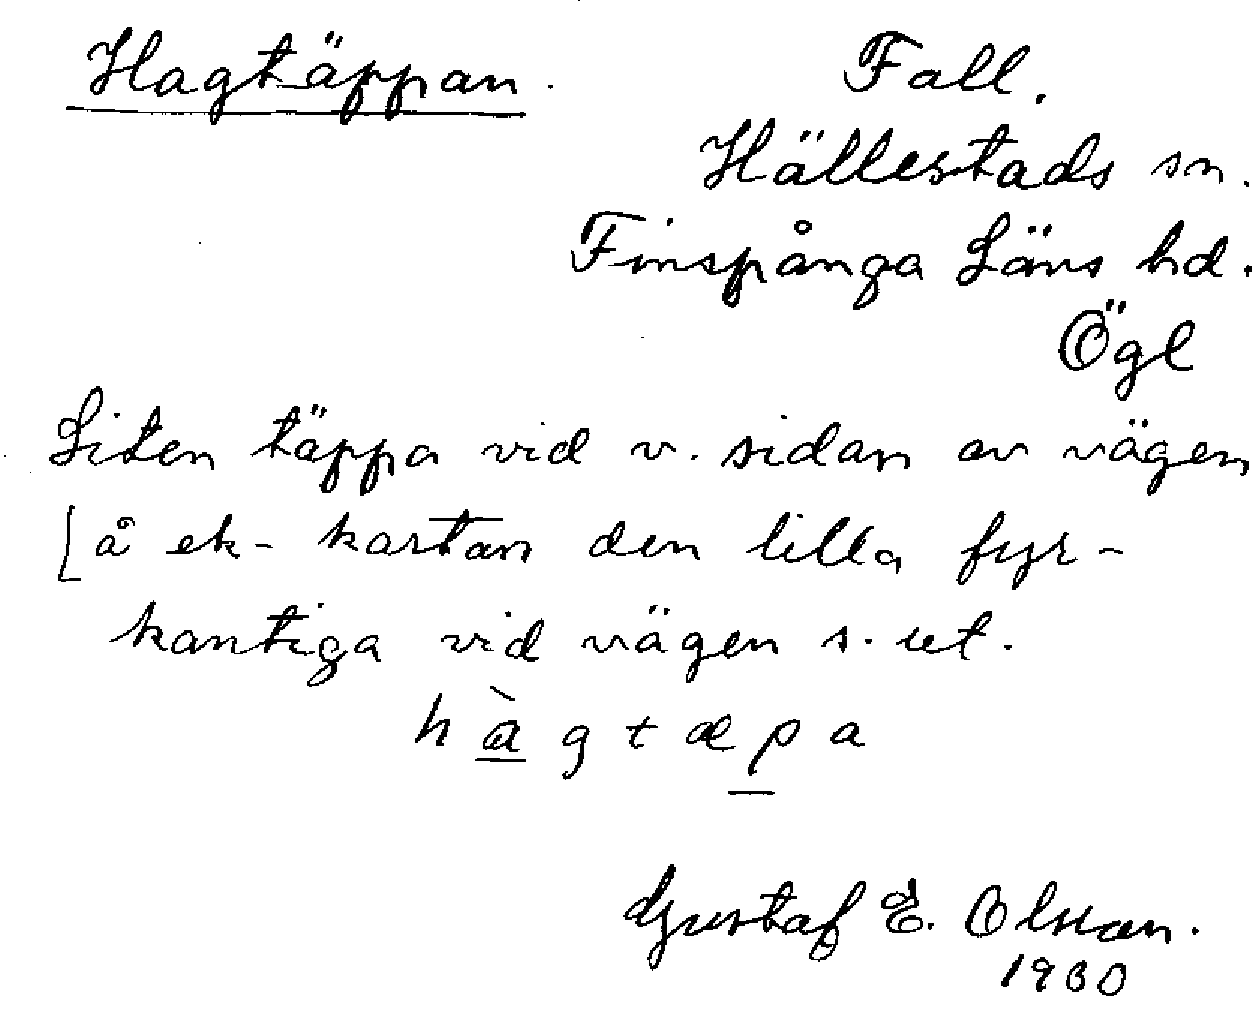 Hagtäppan. Fall.
Hällestads sn.
Finspånga Läns hd.
Ögl
Liten täppa vid v. sidan av vägen
[å ek-kartan den lilla fyr-
kantiga vid vägen s. ut.
hàgtæpa
Gustaf E. Olsson.
1930